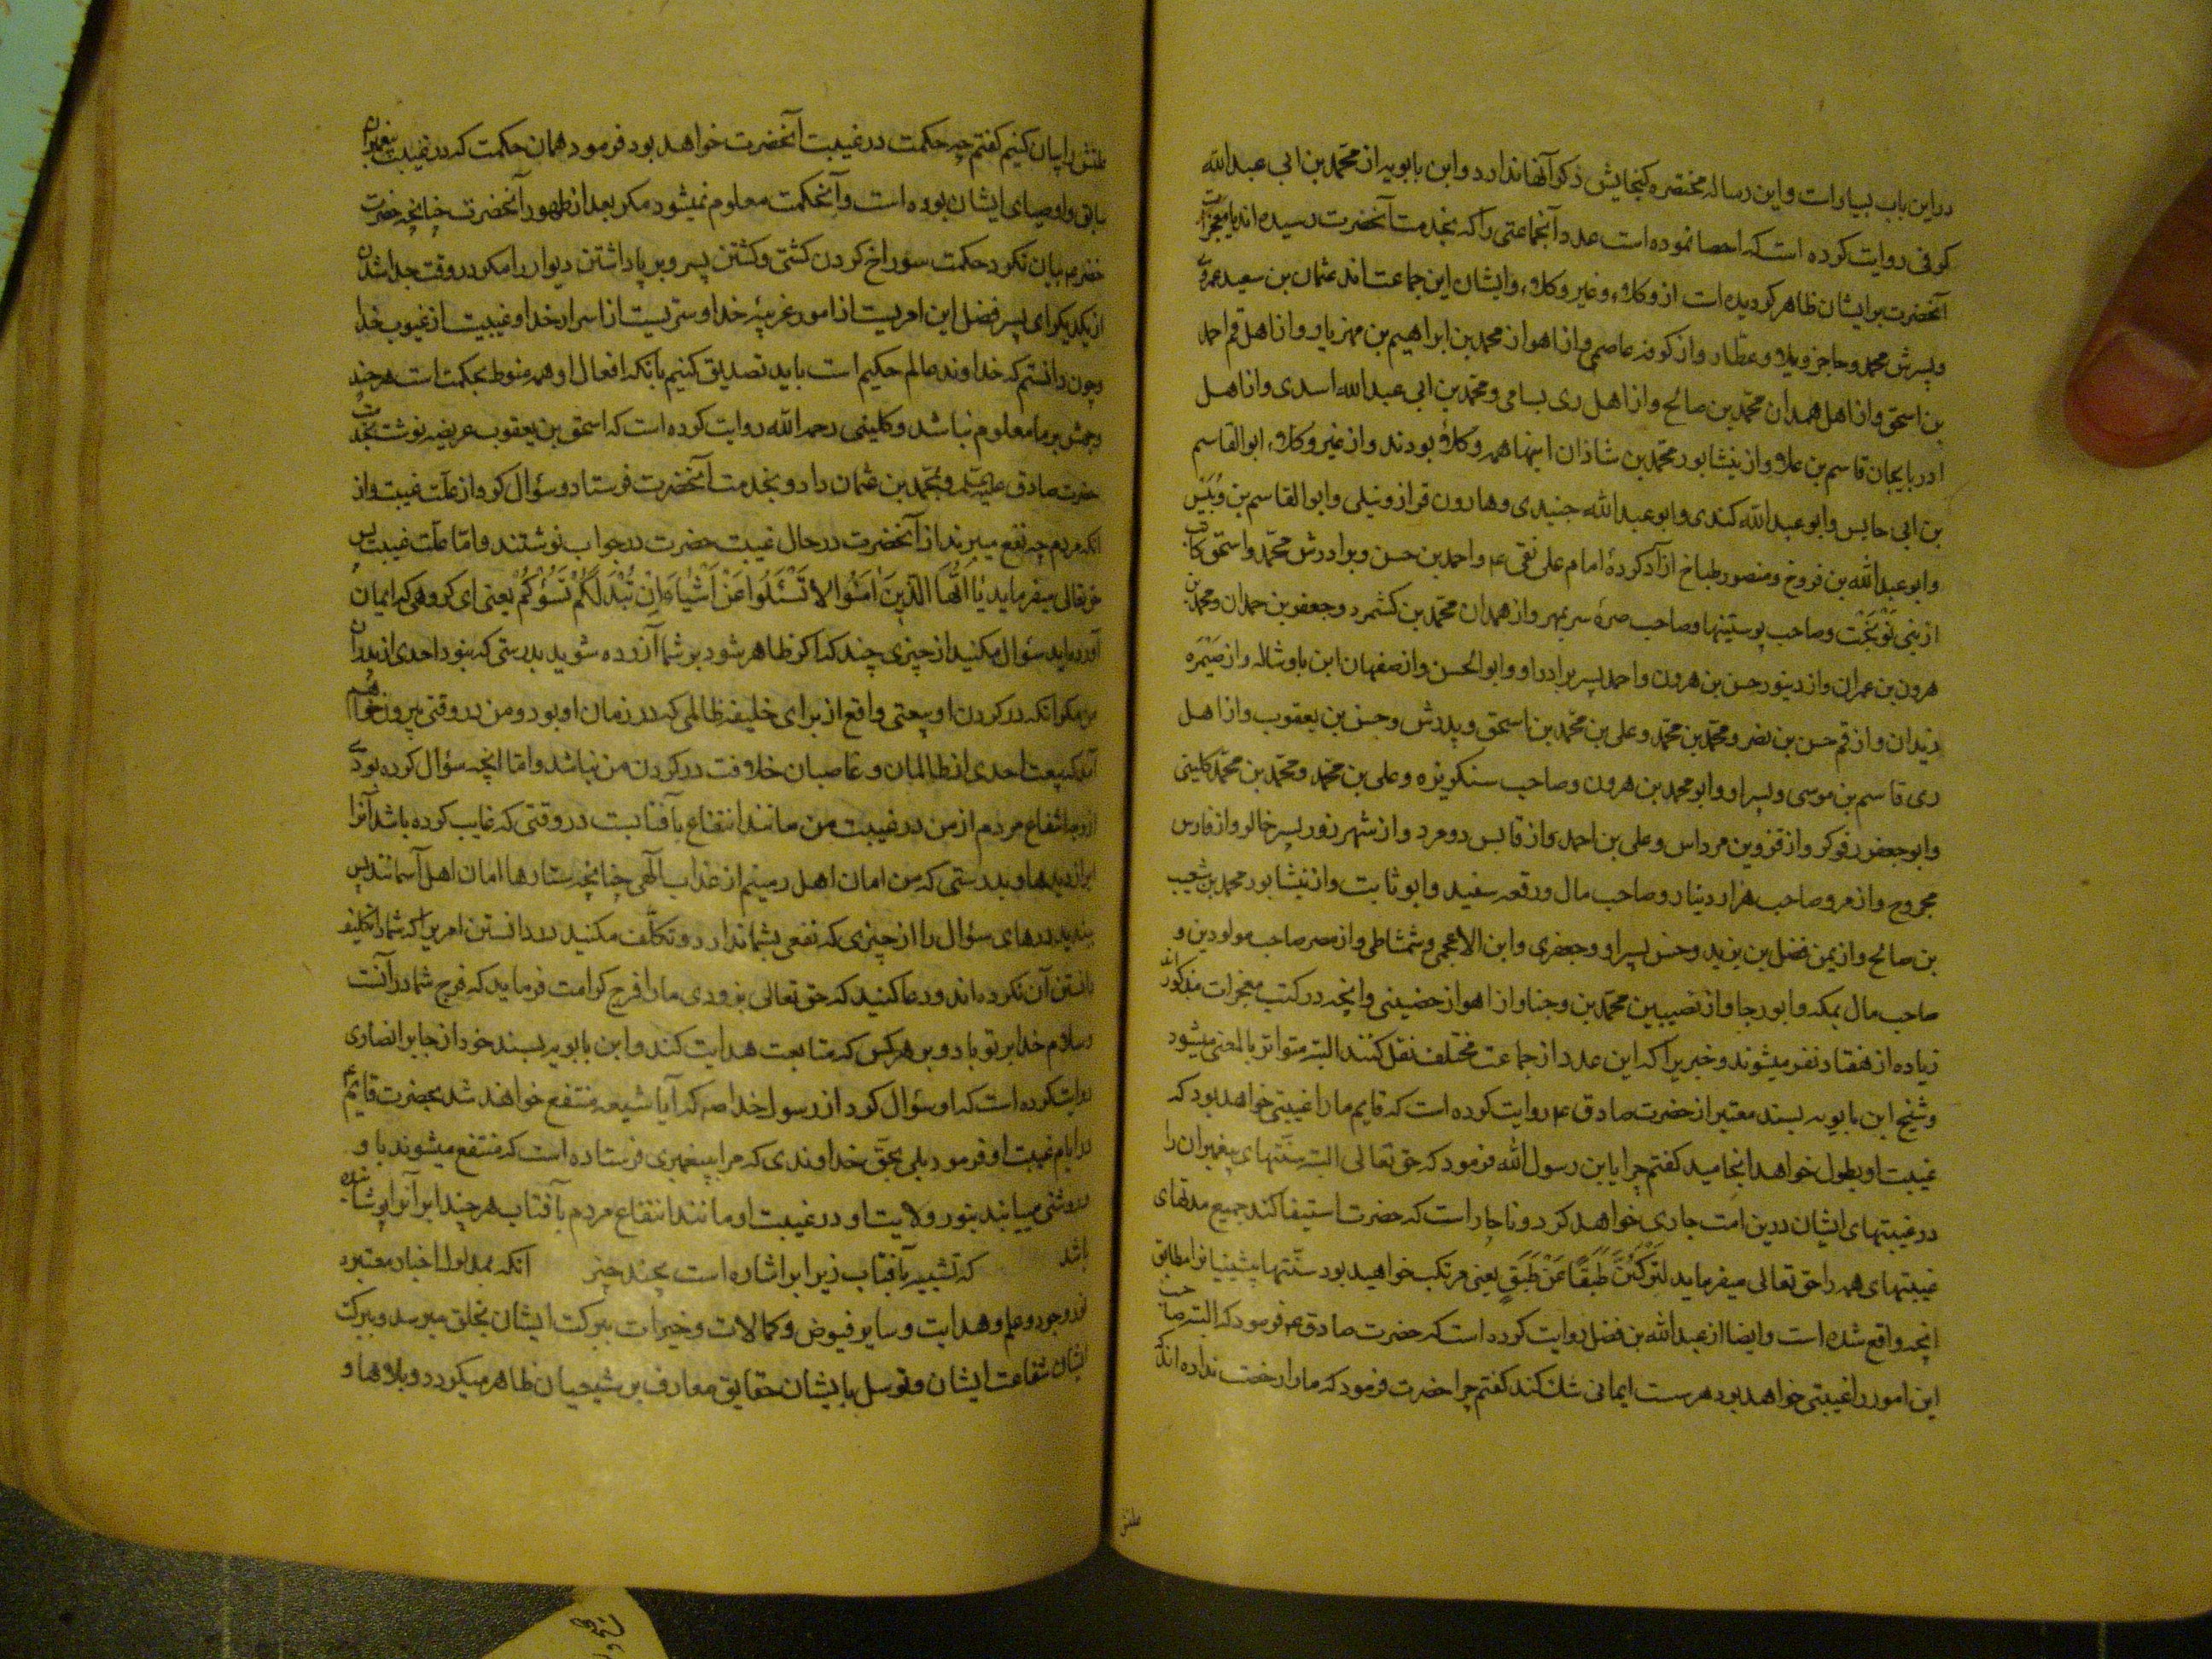 در این باب بسیار است و این رساله مختصره گنجایش ذکر آنها ندارد و ابن بابویه از محمّد بن ابی عبد الله
کوفی روایت کرده است که احصا نموده است عدد آنجماعتی را که بخدمت آنحضرت رسیده اند یا معجزات
آنحضرت بر ایشان ظاهر گردیده است از وکلاء و غیر وکلاء و ایشان این جماعت اند عثمان بن سعید عمروی
و پسرش محمد و حاجز و بلا و عطار و از کوفه عاصمی و از اهواز محمد بن ابراهیم بن مهزیار و از اهل قم احمد
بن اسحق و از اهل همدان محمّد بن صالح و از اهل ری بسامی و محمّد بن ابی عبد الله اسدی و از اهل
ادربایجان قاسم بن علا و از نیشابور محمّد بن شاذان اینها همه وکلاء بودند و از غیر وکلاء ابو القاسم
بن ابی حابس و ابو عبد الله کندی و ابو عبد الله جنیدی و هارون قزاز و نیلی و ابو القاسم بن دُبَیس
و ابو عبد الله بن فروخ و منصور طباخ ازاد کردهٔ امام علی نقی ع و احمد بن حسن و برادرش محمّد و اسحق کاتب
از بنی نَوْبَخْت و صاحب پوستینها و صاحب صرهٔ سر بمهر و از همدان محمّد بن کشمرد و جعفر بن حمدان و محمد بن
هرون بن عمران و از دینور حسن بن هرون و احمد پسر برادر او و ابو الحسن و از صفهان ابن باوشاله و از صَیْمَره
زیدان و از قم حسن بن نضر و محمّد بن محمّد و علی بن محمّد بن اسحق و پدرش و حسن بن یعقوب و از اهل
ری قاسم بن موسی و پسر او و ابو محمد بن هرون و صاحب سنکریزه و علی بن محمّد و محمّد بن محمّد کلینی
و ابو جعفر رفوکر و از قزوین مرداس و علی بن احمد و از قابس دو مرد و از شهر زور پسر خال و از فارس
مجروح و از مرو صاحب هزار دینار و صاحب مال و رقعه سفید و ابو ثابت و از نیشابور محمد بن شعیب
بن صالح و از یمن فضل بن یزید و حسن پسر او و جعفری و ابن الاعجمی و شمشاطی و از مصر صاحب مولودین و
صاحب مال بمکه و ابو رجا و از نصیبین محمّد بن وجنا و از اهواز حضینی و انچه در کتب معجزات مذکور اند
زیاده از هفتاد نفر میشوند و خبریرا که این عدد از جماعت مختلف نقل کنند البته متواتر بالمعنی میشود
و شیخ ابن بابویه بسند معتبر از حضرت صادق ع روایت کرده است که قایم ما را غیبتی خواهد بود که
غیبت او بطول خواهد انجامید کفتم چرا یابن رسول الله فرمود که حق تعالی البته سنّتهای پیغمبران را
در غیبتهای ایشان در ین امت جاری خواهد کرد و ناچار است که حضرت استیفا کند جمیع مدتهای
غیبتهای همه را حق تعالی میفرماید لَتَرْکَبُنَّ طَبَقًا عَنْ طَبَقٍ یعنی مرتکب خواهید بود سنّتها پیشینیانرا مطابق
انچه واقع شده است و ایضا از عبد الله بن فضل روایت کرده است که حضرت صادق ع فرمود که البته صاحب
این امور را غیبتی خواهد بود هر سست ایمانی شك کند کفتم چرا حضرت فرمود که ما را رخصت نداده اند که
علتش
علتش را بیان کنیم کفتم چه حکمت در غیبت آنحضرت خواهد بود فرمود همان حکمت که در غیبت پیغمبران
سابق و اوصیای ایشان بوده است و آنحکمت معلوم نمیشود مکر بعد از ظهور آنحضرت چنانچه حضرت
خضر ع بیان نکرد حکمت سوراخ کردن کشتی و کشتن پسر و بر پا داشتن دیوار را مکر در وقت جدا شدن
از یکدیکر ای پسر فضل این امریست از امور غریبهٔ خدا و سرّیست از اسرار خدا و غیبیست از غیوب خدا
و چون دانستم که خداوند عالم حکیم است باید تصدیق کنیم بآنکه افعال او همه منوط بحکمت است هر چند
وجهش بر ما معلوم نباشد و کلینی رحمه الله روایت کرده است که اسحق بن یعقوب عریضه نوشت بخدمت
حضرت صادق علیه السلم و بمحمّد بن عثمان داد و بخدمت آنحضرت فرستاد و سؤال کرد از علّت غیبت و از
انکه مردم چه نفع میبرند از آنحضرت در حال غیبت حضرت در جواب نوشتند و امّا علّت غیبت پس
حق تعالی میفرماید یٰا اَیُّهَا الَّذینَ اٰمَنُوا لا تَسْئَلُوا عَنْ اَشْیٰاءَ اِنْ تُبْدَ لَکُمْ تَسُؤْکُمْ یعنی ای کروهی که ایمان
آورده‌اید سؤال مکنید از چیزی چند که اکر ظاهر شود بر شما آزرده شوید بدرستی که نبود احدی از پدران
من مکر انکه در کردن او بیعتی واقع از برای خلیفه ظالمی که در زمان او بود و من در وقتی بیرون خواهم
آمد که بیعت احدی از ظالمان و غاصبان خلافت در کردن من نباشد و امّا انچه سؤال کرده بودی
از وجه انتفاع مردم از من در غیبت من مانند انتفاع بآفتابست در وقتی که غایب کرده باشد آنرا
ابر از دیدها و بدرستی که من امان اهل زمینم از عذاب الهی چنانچه ستارها امان اهل آسمانند پس
ببندید درهای سؤال را از چیزی که نفعی بشما ندارد و تکلّف مکنید در دانستن امریرا که شما را تکلیف
دانستن آن نکرده‌اند و دعا کنید که حق تعالی بزودی ما را فرج کرامت فرماید که فرج شما در آنست
و سلام خدا بر تو باد و بر هر کس که متابعت هدایت کند و ابن بابویه بسند خود از جابر انصاری
روایت کرده است که او سؤال کرد از رسول خدا ص که آیا شیعه منتفع خواهند شد بحضرت قایم ع
در ایام غیبت او فرمود بلی بحقّ خداوندی که مرا پیغمبری فرستاده است که منتفع میشوند با و
و روشنی مییابند بنور ولایت او در غیبت او مانند انتفاع مردم بآفتاب هر چند ابر آنرا پوشانیده
باشد که تشبیه بآفتاب زیر ابر اشاره است بچند چیز انکه بمدلول اخبار معتبره
نور وجود و علم و هدایت و سایر فیوض و کمالات و خیرات ببرکت ایشان بخلق میرسد و ببرکت
ایشان شفاعت ایشان و توسل بایشان حقایق معارف بر شیعیان ظاهر میکردد و بلاها و